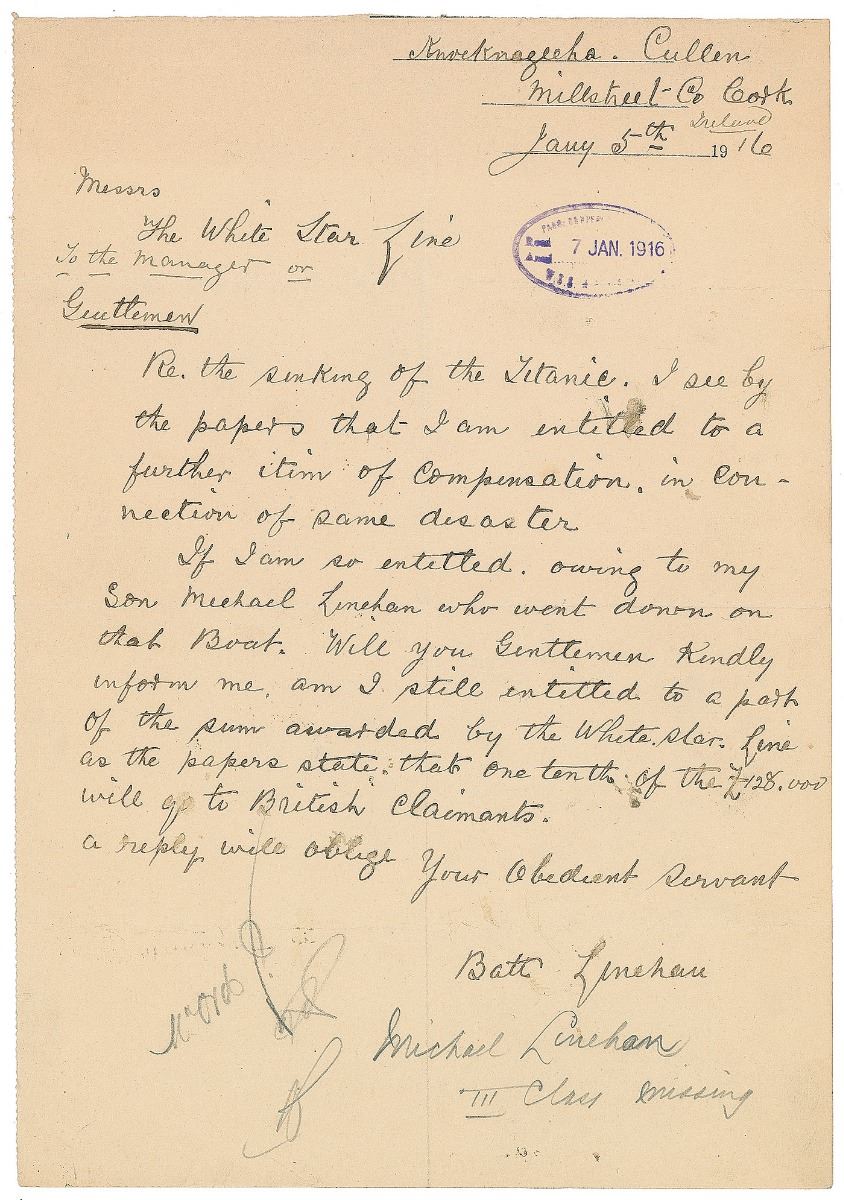 Knocknageeha. Cullen
Millstreet Co Cork
Ireland
Jany 5th 1916
Messrs
The White Star Line
To the Manager or
Gentlemen
7 JAN. 1916
Re. the sinking of the Titanic. I see by
the papers that I am entitled to a
further itim of compensation. in con-
nection of same disaster
If I am so entitled. owing to my
Son Michael Linehan who went down on
that Boat. Will you Gentlemen Kindly
inform me. am I still entitled to a part
of the sum awarded by the White. Star. Line
as the papers state. that one tenth. of the £128.000
will go to British Claimants.
a reply will oblige Your Obedient servant
Batt Linehan
Michael Linehan
III Class Missing